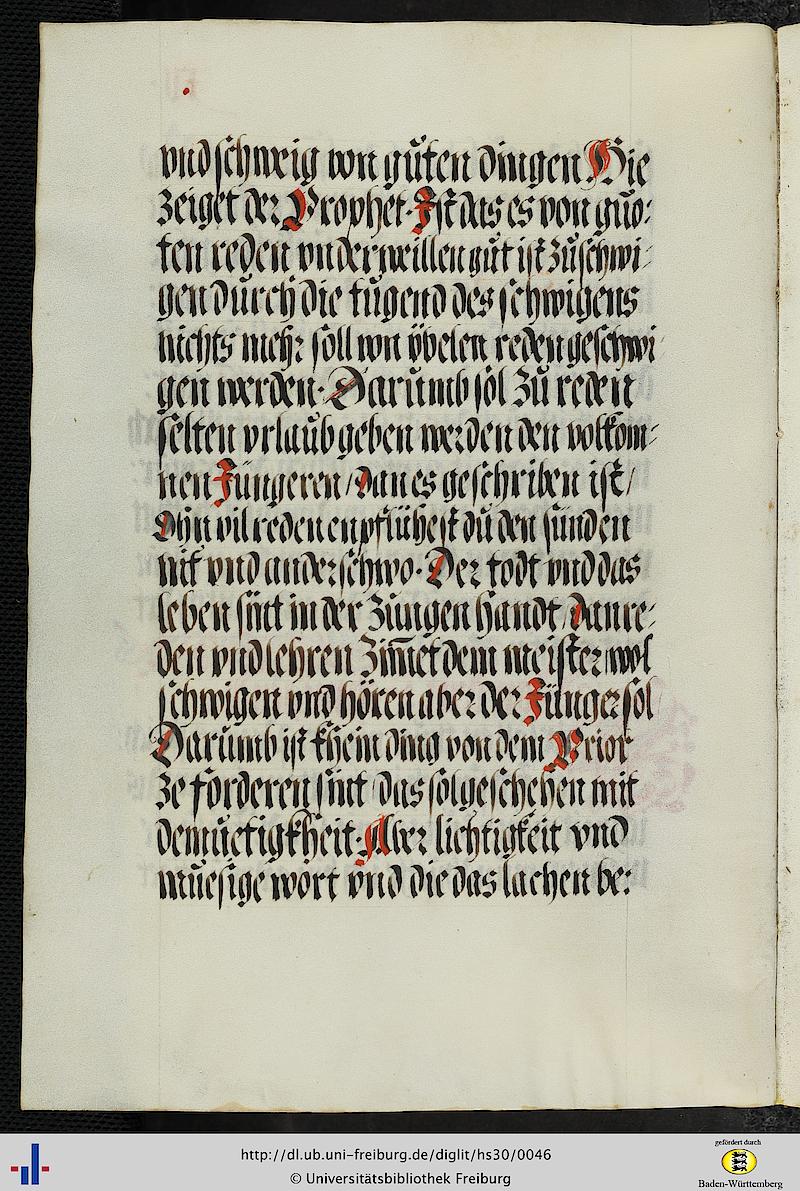 vnd schweig von gůten dingen Hie
zeiget der Prophet. Ist das es von guo:
ten reden vnderweillen gůt ist zůschwi:
gen durch die tůgend des schwigens
nichts mehr soll von ÿbelen reden geschwi:
gen werden. Darůmb sol zů reden
selten vrlaůb geben werden den volkom:
nen Jüngeren / dan es geschriben ist /
Dÿn vil reden enpflühest dů den sünden
nit vnd anderschwo. Der todt vnd das
leben sint in der zůngen handt / dan re:
den vnd lehren zim̅et dem meister wol
schwigen vnd hören aber der Jünger sol
Darůmb ist khein ding von dem Prior
ze forderen sint das sol geschehen mit
demuetigkheit. Aber lichtigkeit vnd
můesige wort vnd die das lachen be:
http://dl.ub.uni-freiburg.de/diglit/hs30/0046
© Universitätsbibliothek Freiburg
gefördert durch
Baden-Württemberg